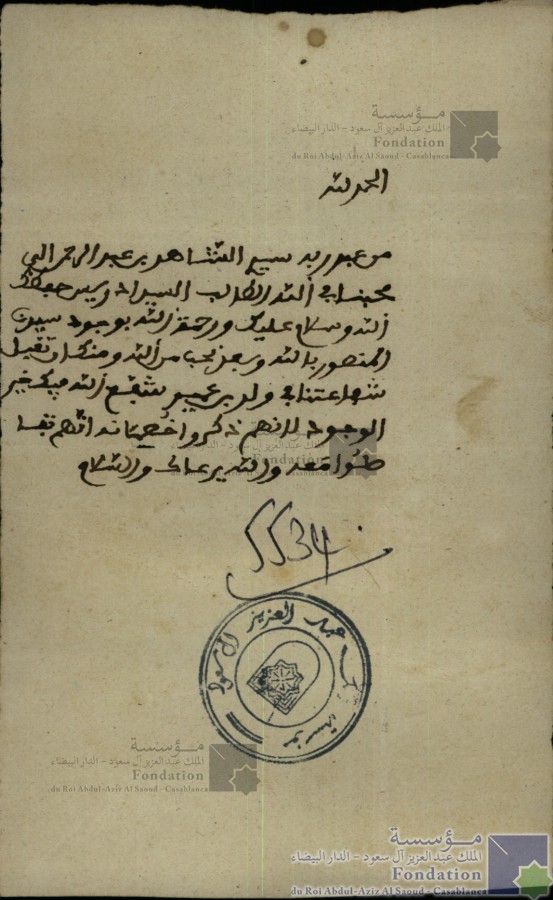 مؤسسة
الملك عبد العزيز آل سعود - الدار البيضاء
Fondation
du Roi Abdul-Aziz Al Saoud - Casablanca
الحمد لله
من عبد ربه سبحانه الشاهد بن عبد الرحمن الى
محبنا في الله الطالب السيد ادريس حفظك
الله وسلام عليك ورحمة الله بوجود سيدنا
المنصور بالله وبعد نحب من الله ومنك ان تقبل
شفاعتنا في ولد بن عمير شفع الله فيك خير
الوجود لانهم ذكروا
معه والله يرعاك والسلام
5534
مؤسسة الملك عبد العزيز آل سعود
مؤسسة
الملك عبد العزيز آل سعود - الدار البيضاء
Fondation
du Roi Abdul-Aziz Al Saoud - Casablanca
مؤسسة
الملك عبد العزيز آل سعود - الدار البيضاء
Fondation
du Roi Abdul-Aziz Al Saoud - Casablanca